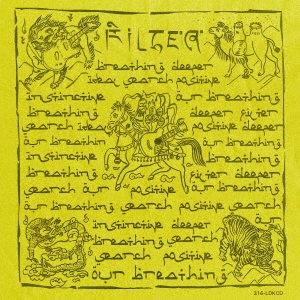 FILTER
breathing deeper
idea search positive
instinctive our breathing
breathing deeper filter
search idea positive deeper
our breathin our breathing
instinctive positive deeper
breathing filter deeper
search our positive search our
breathing positive breathing
search our positive search our
instinctive deeper
breathing search
search positive
our breathing
316-LDKCD